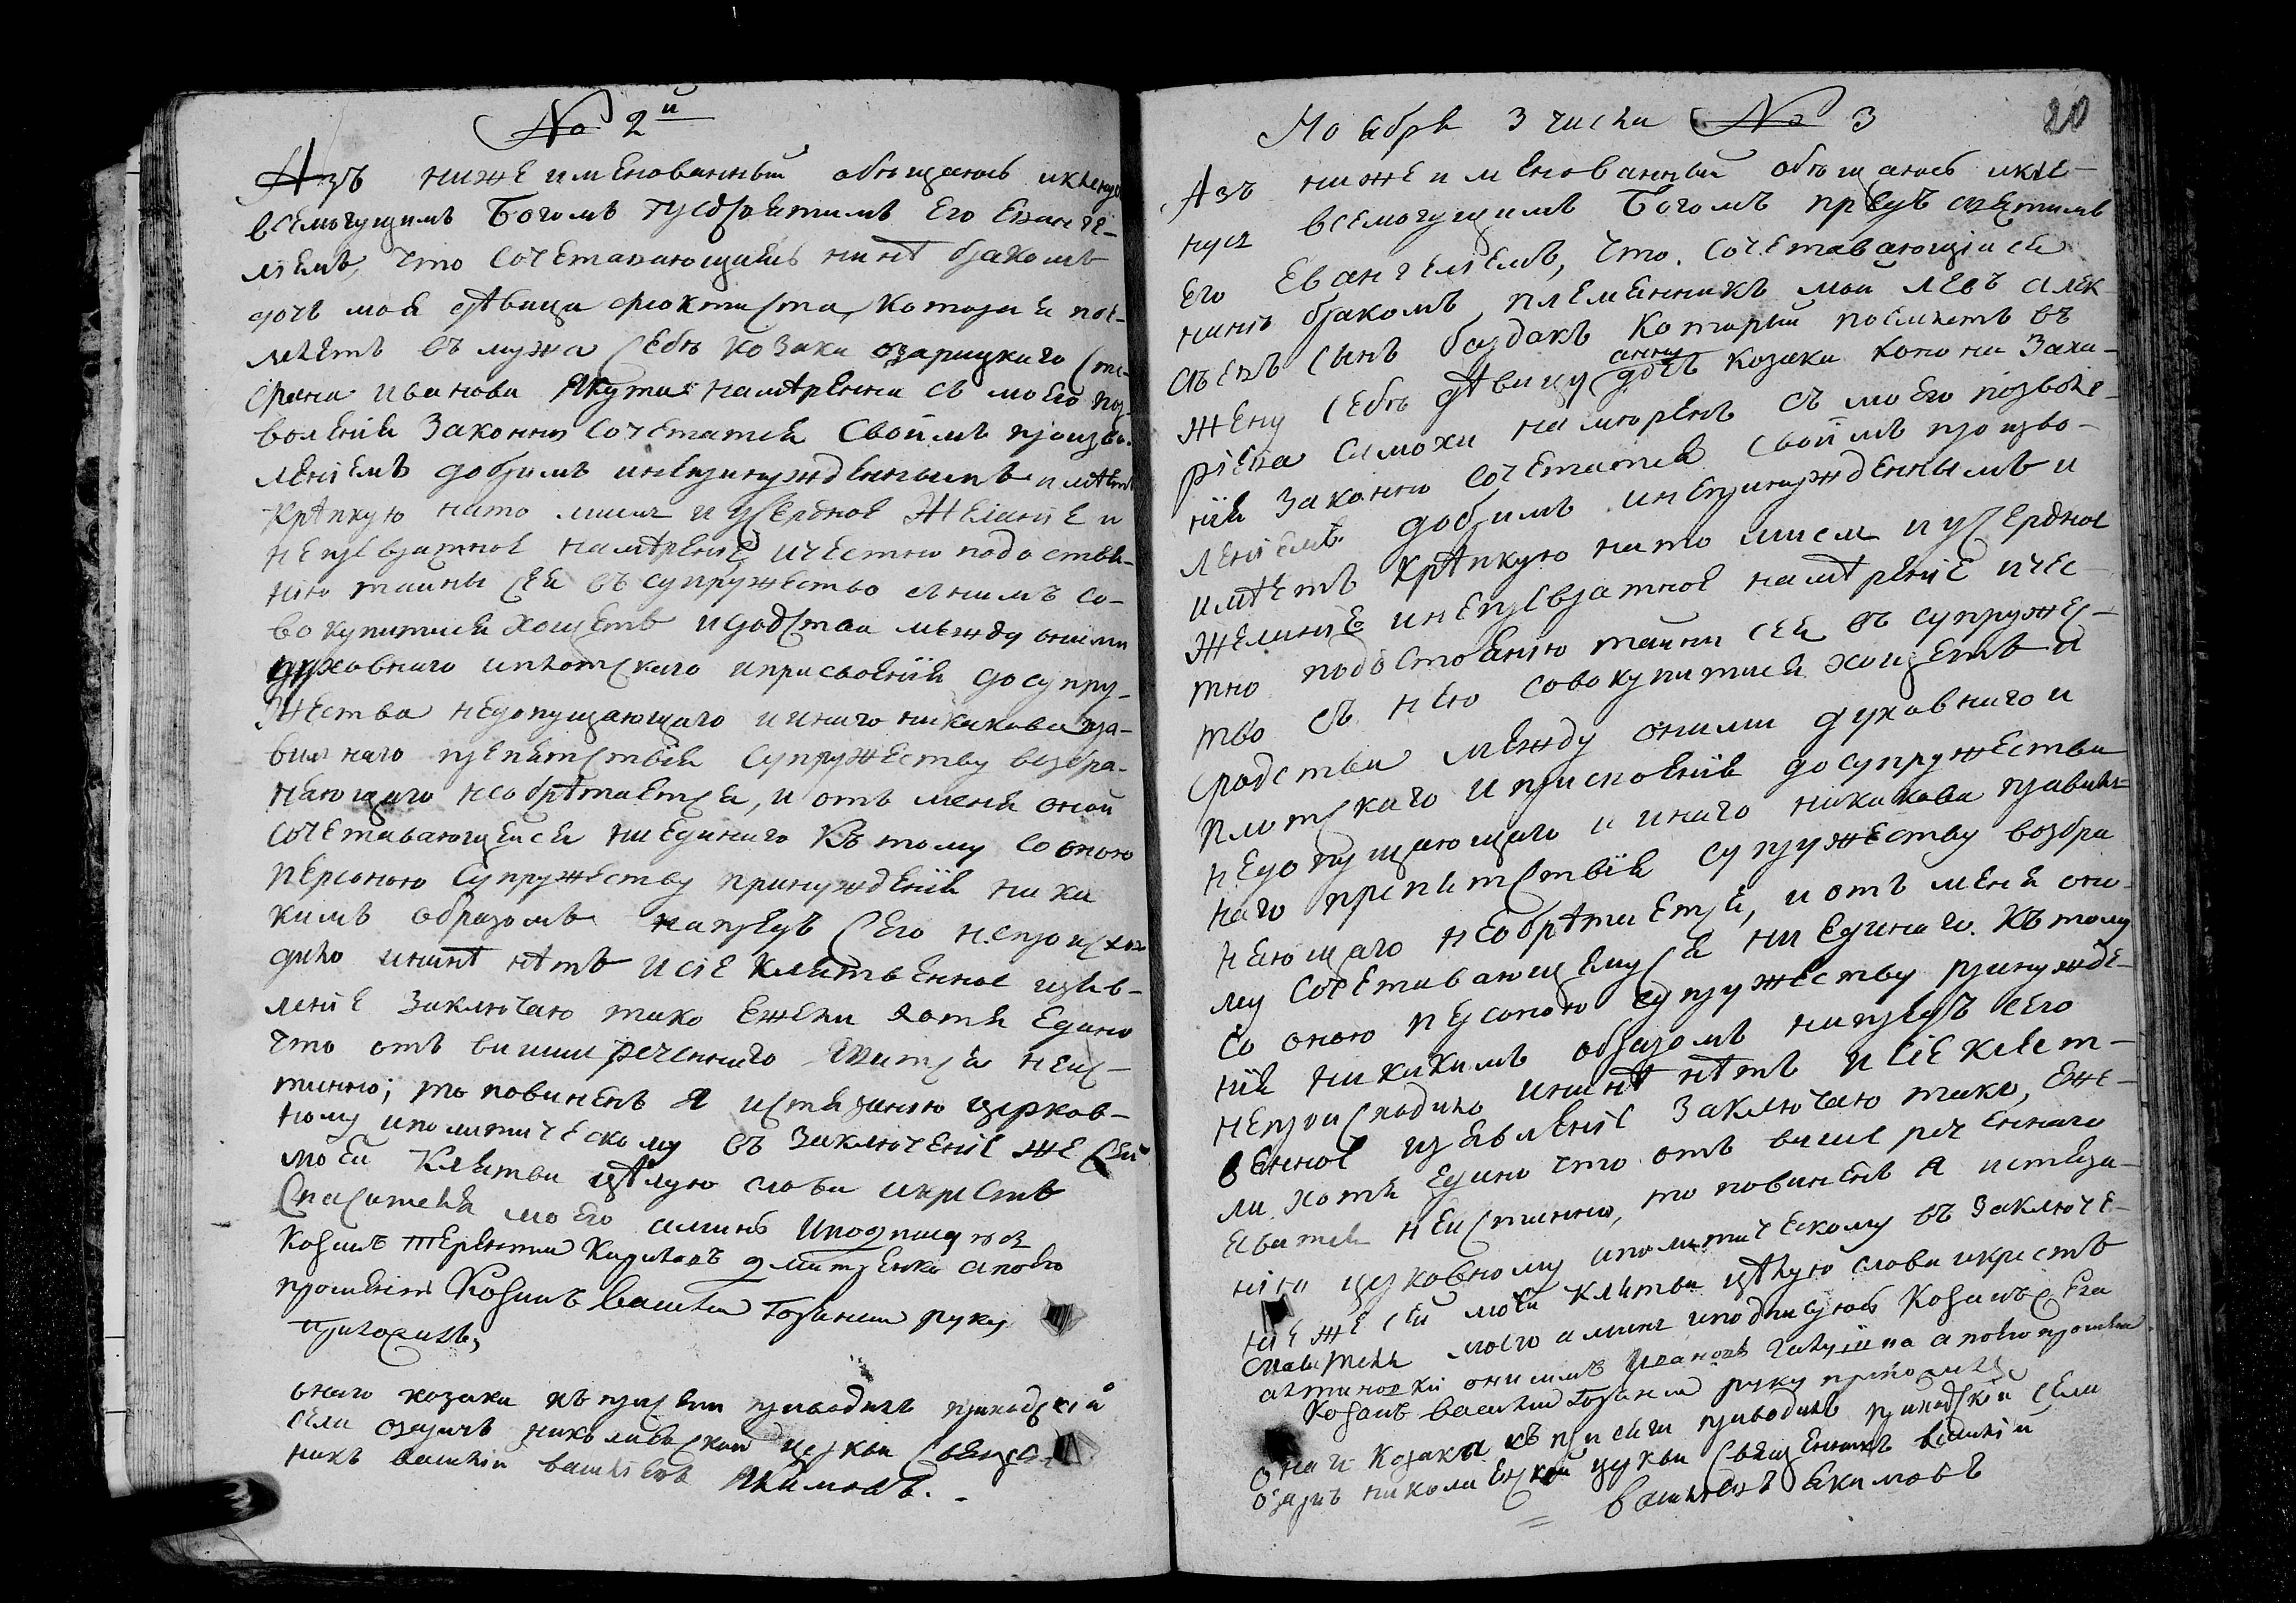 № 2й
Азъ нижеименованный обещаюсь и кленус
всемогущимъ Богомъ предъ святимъ его Еванге-
лиемъ, что сочетавающаясь нинѣ бракомъ
дочь моя дѣвица Феоктиста, которая пое-
млетъ въ мужа себѣ козака озарицкаго Сте-
фана Иванова Якути намѣренна съ моего поз-
воления законно сочетатися своимъ произво-
лениемъ добримъ и непринужденнымъ и мѣетъ
крѣпкую на то мисль и усердное желание и
непревратное намѣрение, и честно по достоя-
нию тайны сея въ супружество с нимъ со-
вокупитися хощетъ и родства между оними
духовнаго и плотскаго и присвоения до супру-
жества недопущающаго и инаго никакова пра-
вилнаго препятствия супружеству возбра-
няющаго необрѣтается, и отъ меня оной
сочетавающейся ни единаго къ тому со оною
персоною супружеству принуждения ника
кимъ образомъ напредъ сего непроисхо
дило и нинѣ нѣтъ и сие клятвенное изяв-
ление заключаю тако ежели хотя едино
что отъ вишше реченнаго явится неис-
тинно; то повиненъ я истязанию церков-
ному и политическому въ заключение же сей
моей клятви цѣлую слова и крестъ
Спасителя моего аминь и подписуюся
Козакъ Терентий Кириловъ Дмитренко а по его
прошению Козакъ Василий Горанин руку
приложилъ,
онаго козака къ присяги приводилъ приходский
села озаричъ николаевской церкви священ-
никъ василий василиевъ Якимовъ.
Ноября 3 числа № 3
20
Азъ нижеименованный обещаюсь и кле-
нуся всемогущимъ Богомъ предъ святимъ
его Евангелиемъ, что сочетавающийся
нинѣ бракомъ племянникъ мой левъ алек
съевъ синъ баздакъ который поемлетъ въ
жену себѣ дѣвицу анну дочь козака конона Заха-
риева Самохи намѣренъ съ моего позволе-
ния законно сочетатися своимъ произво-
лениемъ добримъ и непринужденнымъ и
имѣетъ крѣпкую на то мисль и усердное
желание и непревратное намѣрение и чес-
тно по достоянию тайни сея въ супружес-
тво съ нею совокупитися хощетъ и
сродства между оними духовнаго и
плотскаго и присвоения до супружества
недопущающаго и инаго никакова правил-
наго препятствия супружеству возбра
няющаго необрѣтается, и отъ меня оно-
му сочетавающемуся ни единаго къ тому
со оною персоною супружеству принужде-
ния никакимъ образомъ напредъ сего
непроисходило и нинѣ нѣтъ и сие клят-
венное изявление заключаю тако, еже-
ли хотя едино что отъ више реченнаго
явится неистинно, то повиненъ я истяза-
нию церковному и политическому въ заключе-
ние же сей моей клятви цѣлую слова и крестъ
спасителя моего аминь и подписуюсь Козакъ села
онисимъ Ивановъ а по его прошению
Козакъ Василий Горанин руку приложилъ
онаго козака къ присяги приводилъ приходский села
озаричъ николаевской церкви священникъ василий
василиевъ Якимовъ